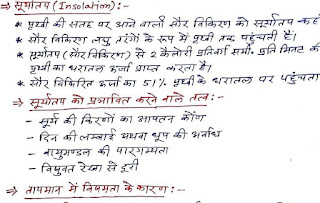 ⇒ सूर्यातप (Insolation) :-
* पृथ्वी की सतह पर आने वाली सौर विकिरण को सूर्यातप कहते
* सौर विकिरण लघु तरंगों के रूप में पृथ्वी तक पहुंचती है।
* सूर्यातप (सौर विकिरण) से 2 कैलोरी प्रतिवर्ग सेमी० प्रति मिनट की
पृथ्वी का धरातल ऊर्जा प्राप्त करता है।
* सौर विकिरित ऊर्जा का 51% पृथ्वी के धरातल पर पहुंचता
⇒ सूर्यातप को प्रभावित करने वाले तत्व :-
- सूर्य की किरणों का आपतन कोण
- दिन की लम्बाई अथवा धूप की अवधि
- वायुमण्डल की पारगम्यता
- विषुवत रेखा से दूरी
⇒ तापमान में विषमता के कारण :-